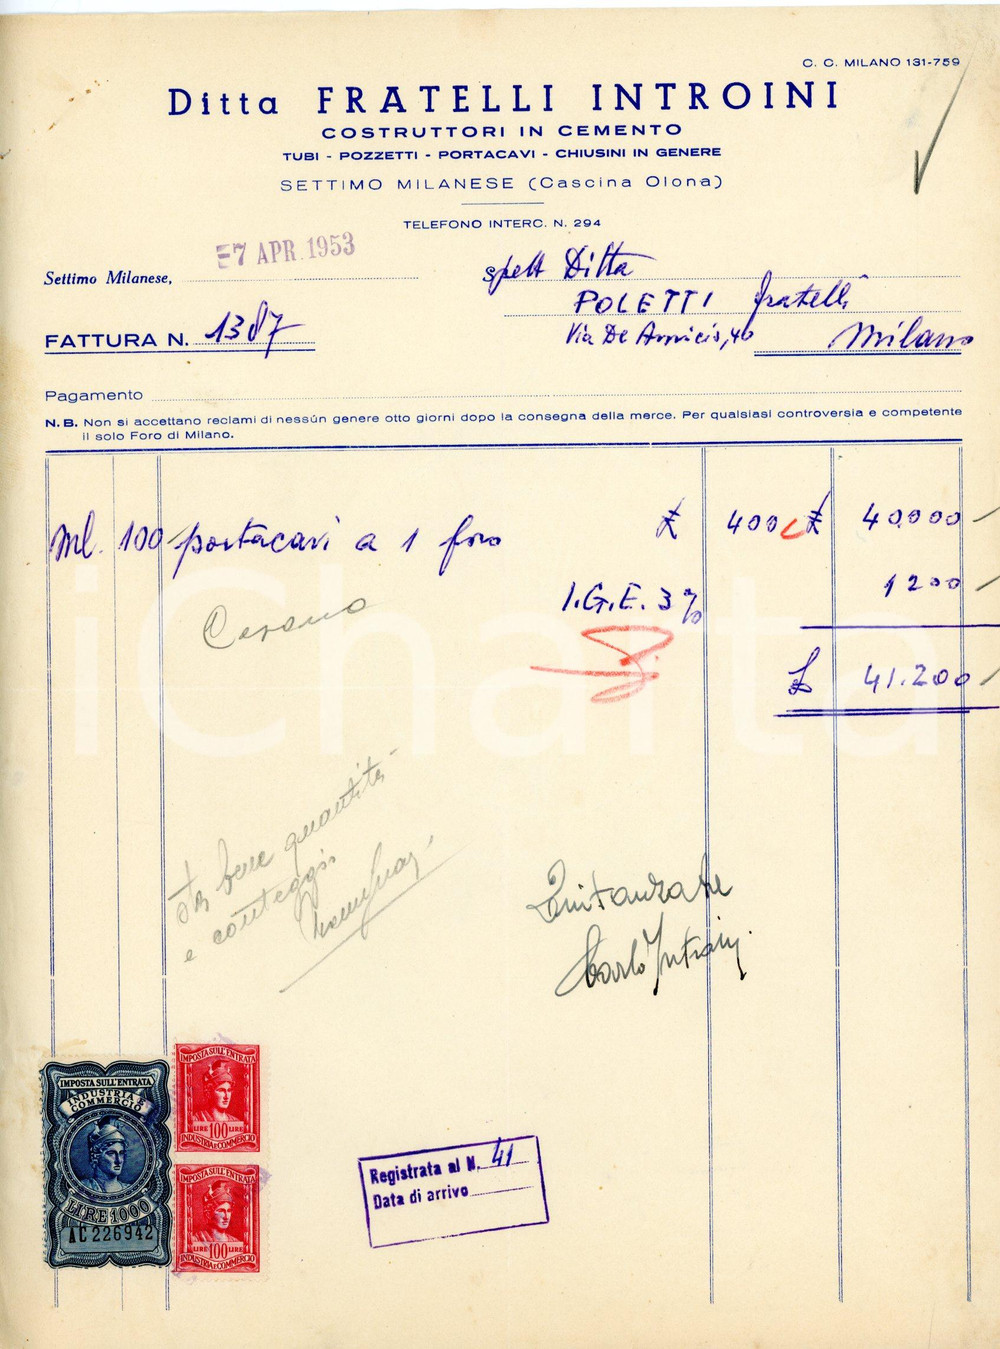 C. C. MILANO 131-759
Ditta FRATELLI INTROINI
COSTRUTTORI IN CEMENTO
TUBI - POZZETTI - PORTACAVI - CHIUSINI IN GENERE
SETTIMO MILANESE (Cascina Olona)
TELEFONO INTERC. N. 294
Settimo Milanese, 7 APR. 1953
spett Ditta
POLETTI fratelli
Via De Amicis, 40 Milano
FATTURA N. 1387
Pagamento
N. B. Non si accettano reclami di nessún genere otto giorni dopo la consegna della merce. Per qualsiasi controversia e competente
il solo Foro di Milano.
Ml. 100 portacavi a 1 foro £ 400 £ 40.000
I.G.E. 3% 1200
Cesano
£ 41.200
iCharta
sta bene quantità
e conteggio
Quitanzate
Carlo Introini
IMPOSTA SULL'ENTRATA
INDUSTRIA E
COMMERCIO
LIRE 1000
AC 226942
IMPOSTA SULL'ENTRATA
LIRE 100 LIRE
INDUSTRIA E COMMERCIO
IMPOSTA SULL'ENTRATA
LIRE 100 LIRE
INDUSTRIA E COMMERCIO
Registrata al N. 41
Data di arrivo